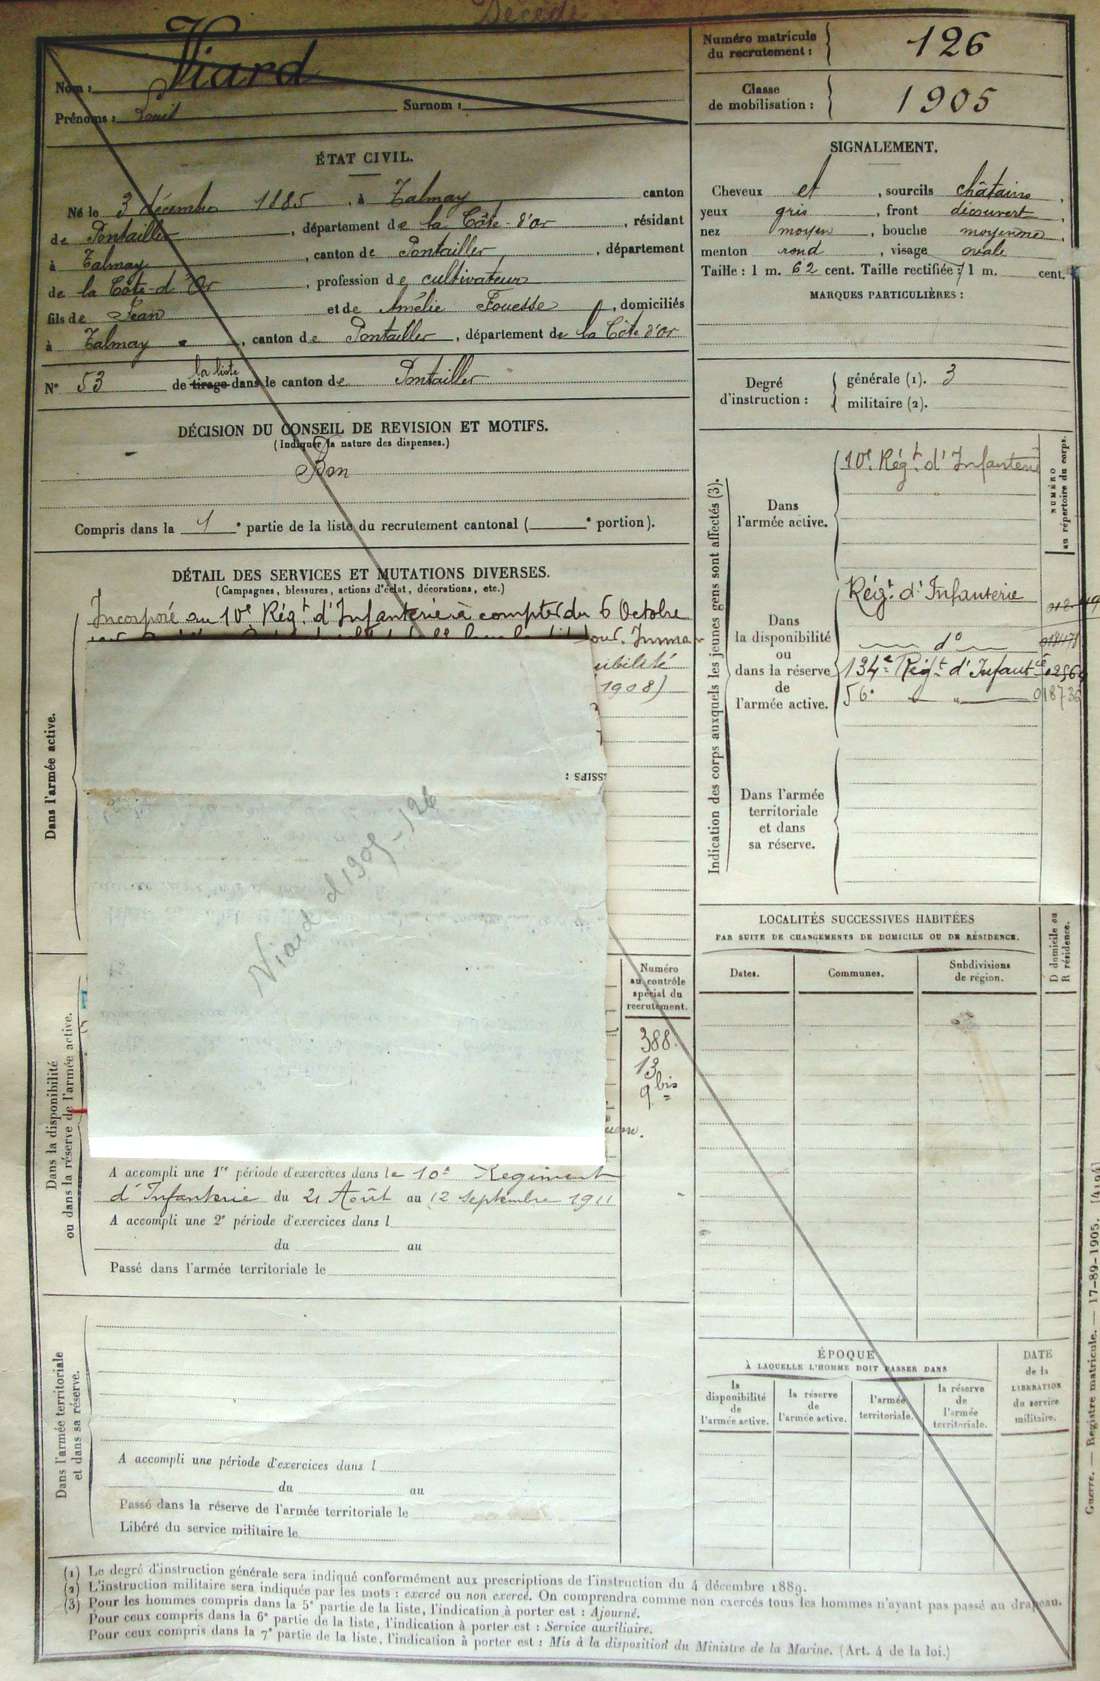 Décédé
Nom : Viard
Prénoms : Louis Surnom :
Numéro matricule
du recrutement : 126
Classe
de mobilisation : 1905
ÉTAT CIVIL.
Né le 3 décembre 1885, à Talmay canton
de Pontailler, département de la Côte-d'Or, résidant
à Talmay, canton de Pontailler, département
de la Côte-d'Or, profession de cultivateur
fils de Jean et de Amélie Fouesse, domiciliés
à Talmay, canton de Pontailler, département de la Côte d'Or
N° 53 de la liste tirage dans le canton de Pontailler
SIGNALEMENT.
Cheveux et, sourcils châtains,
yeux gris, front découvert,
nez moyen, bouche moyenne,
menton rond, visage ovale
Taille : 1 m. 62 cent. Taille rectifiée : 1 m. cent.
MARQUES PARTICULIÈRES :
Degré
d'instruction :
générale (1). 3
militaire (2).
DÉCISION DU CONSEIL DE REVISION ET MOTIFS.
(Indiquer la nature des dispenses.)
Bon
Compris dans la 1e partie de la liste du recrutement cantonal ( e portion).
Indication des corps auxquels les jeunes gens sont affectés (3).
NUMÉRO
au répertoire du corps.
Dans
l'armée active.
10e Régt d'Infanterie
Dans
la disponibilité
ou
dans la réserve
de
l'armée active.
Régt d'Infanterie
do
134e Régt d'Infantie
56e " " 018736
Dans l'armée
territoriale
et dans
sa réserve.
DÉTAIL DES SERVICES ET MUTATIONS DIVERSES.
(Campagnes, blessures, actions d'éclat, décorations, etc.)
Dans l'armée active.
Incorporé au 10e Régt d'Infanterie à compter du 6 Octobre
jour. Imma
ibilité
1908)
SSIFS :
Viard cl 1905 - 126
LOCALITÉS SUCCESSIVES HABITÉES
PAR SUITE DE CHANGEMENTS DE DOMICILE OU DE RÉSIDENCE.
Dates. Communes. Subdivisions
de région.
D domicile ou
R résidence.
Dans la disponibilité
ou dans la réserve de l'armée active.
Numéro
au contrôle
spécial du
recrutement.
388
13
9 bis
A accompli une 1re période d'exercices dans le 10e Régiment
d'Infanterie du 21 Août au 12 septembre 1911
A accompli une 2e période d'exercices dans l
du au
Passé dans l'armée territoriale le
Dans l'armée territoriale
et dans sa réserve.
A accompli une période d'exercices dans l
du au
Passé dans la réserve de l'armée territoriale le
Libéré du service militaire le
ÉPOQUE
À LAQUELLE L'HOMME DOIT PASSER DANS
la
disponibilité
de
l'armée active.
la réserve
de
l'armée active.
l'armée
territoriale.
la réserve
de
l'armée
territoriale.
DATE
de la
LIBÉRATION
du service
militaire.
Guerre. — Registre matricule. — 17-89-1905. [4194]
(1) Le degré d'instruction générale sera indiqué conformément aux prescriptions de l'instruction du 4 décembre 1889.
(2) L'instruction militaire sera indiquée par les mots : exercé ou non exercé. On comprendra comme non exercés tous les hommes n'ayant pas passé au drapeau.
(3) Pour les hommes compris dans la 5e partie de la liste, l'indication à porter est : Ajourné.
Pour ceux compris dans la 6e partie de la liste, l'indication à porter est : Service auxiliaire.
Pour ceux compris dans la 7e partie de la liste, l'indication à porter est : Mis à la disposition du Ministre de la Marine. (Art. 4 de la loi.)